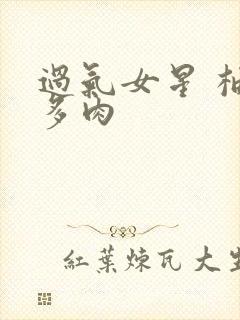 過氣女星
多肉
紅葉煉瓦大